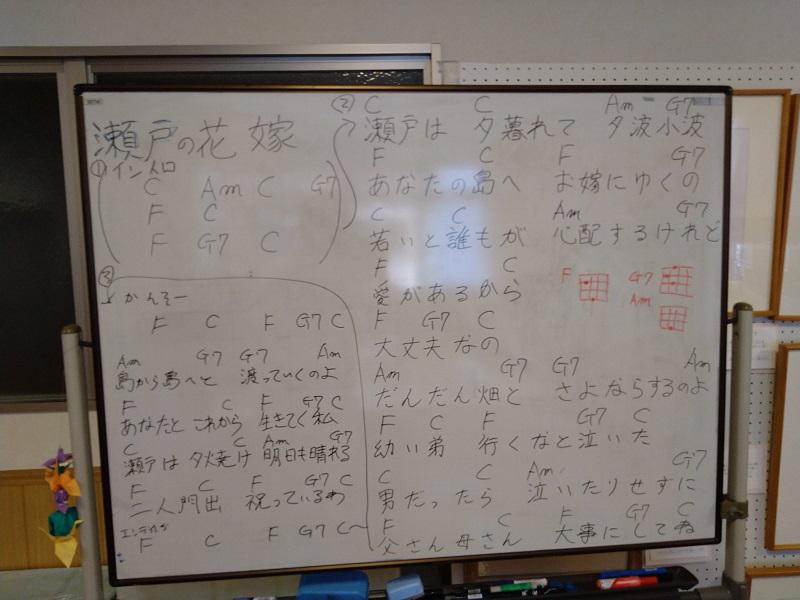 瀬戸の花嫁
① イントロ
C Am C G7
F C
F G7 C
② C C Am G7
瀬戸は 夕暮れて 夕波小波
F C F G7
あなたの島へ お嫁にゆくの
C C Am G7
若いと誰もが 心配するけれど
F C
愛があるから
F G7 C
大丈夫なの
Am G7 G7 Am
だんだん畑と さよならするのよ
F C F G7 C
幼い弟 行くなと泣いた
C C Am G7
男だったら 泣いたりせずに
F C F G7 C
父さん母さん 大事にしてね
F G7
Am
③
かんそー
F C F G7 C
Am G7 G7 Am
島から島へと 渡っていくのよ
F C F G7 C
あなたと これから 生きてく私
C C Am G7
瀬戸は 夕焼け 明日も晴れる
F C F G7 C
二人門出 祝っているわ
エンディング
F C F G7 C〜